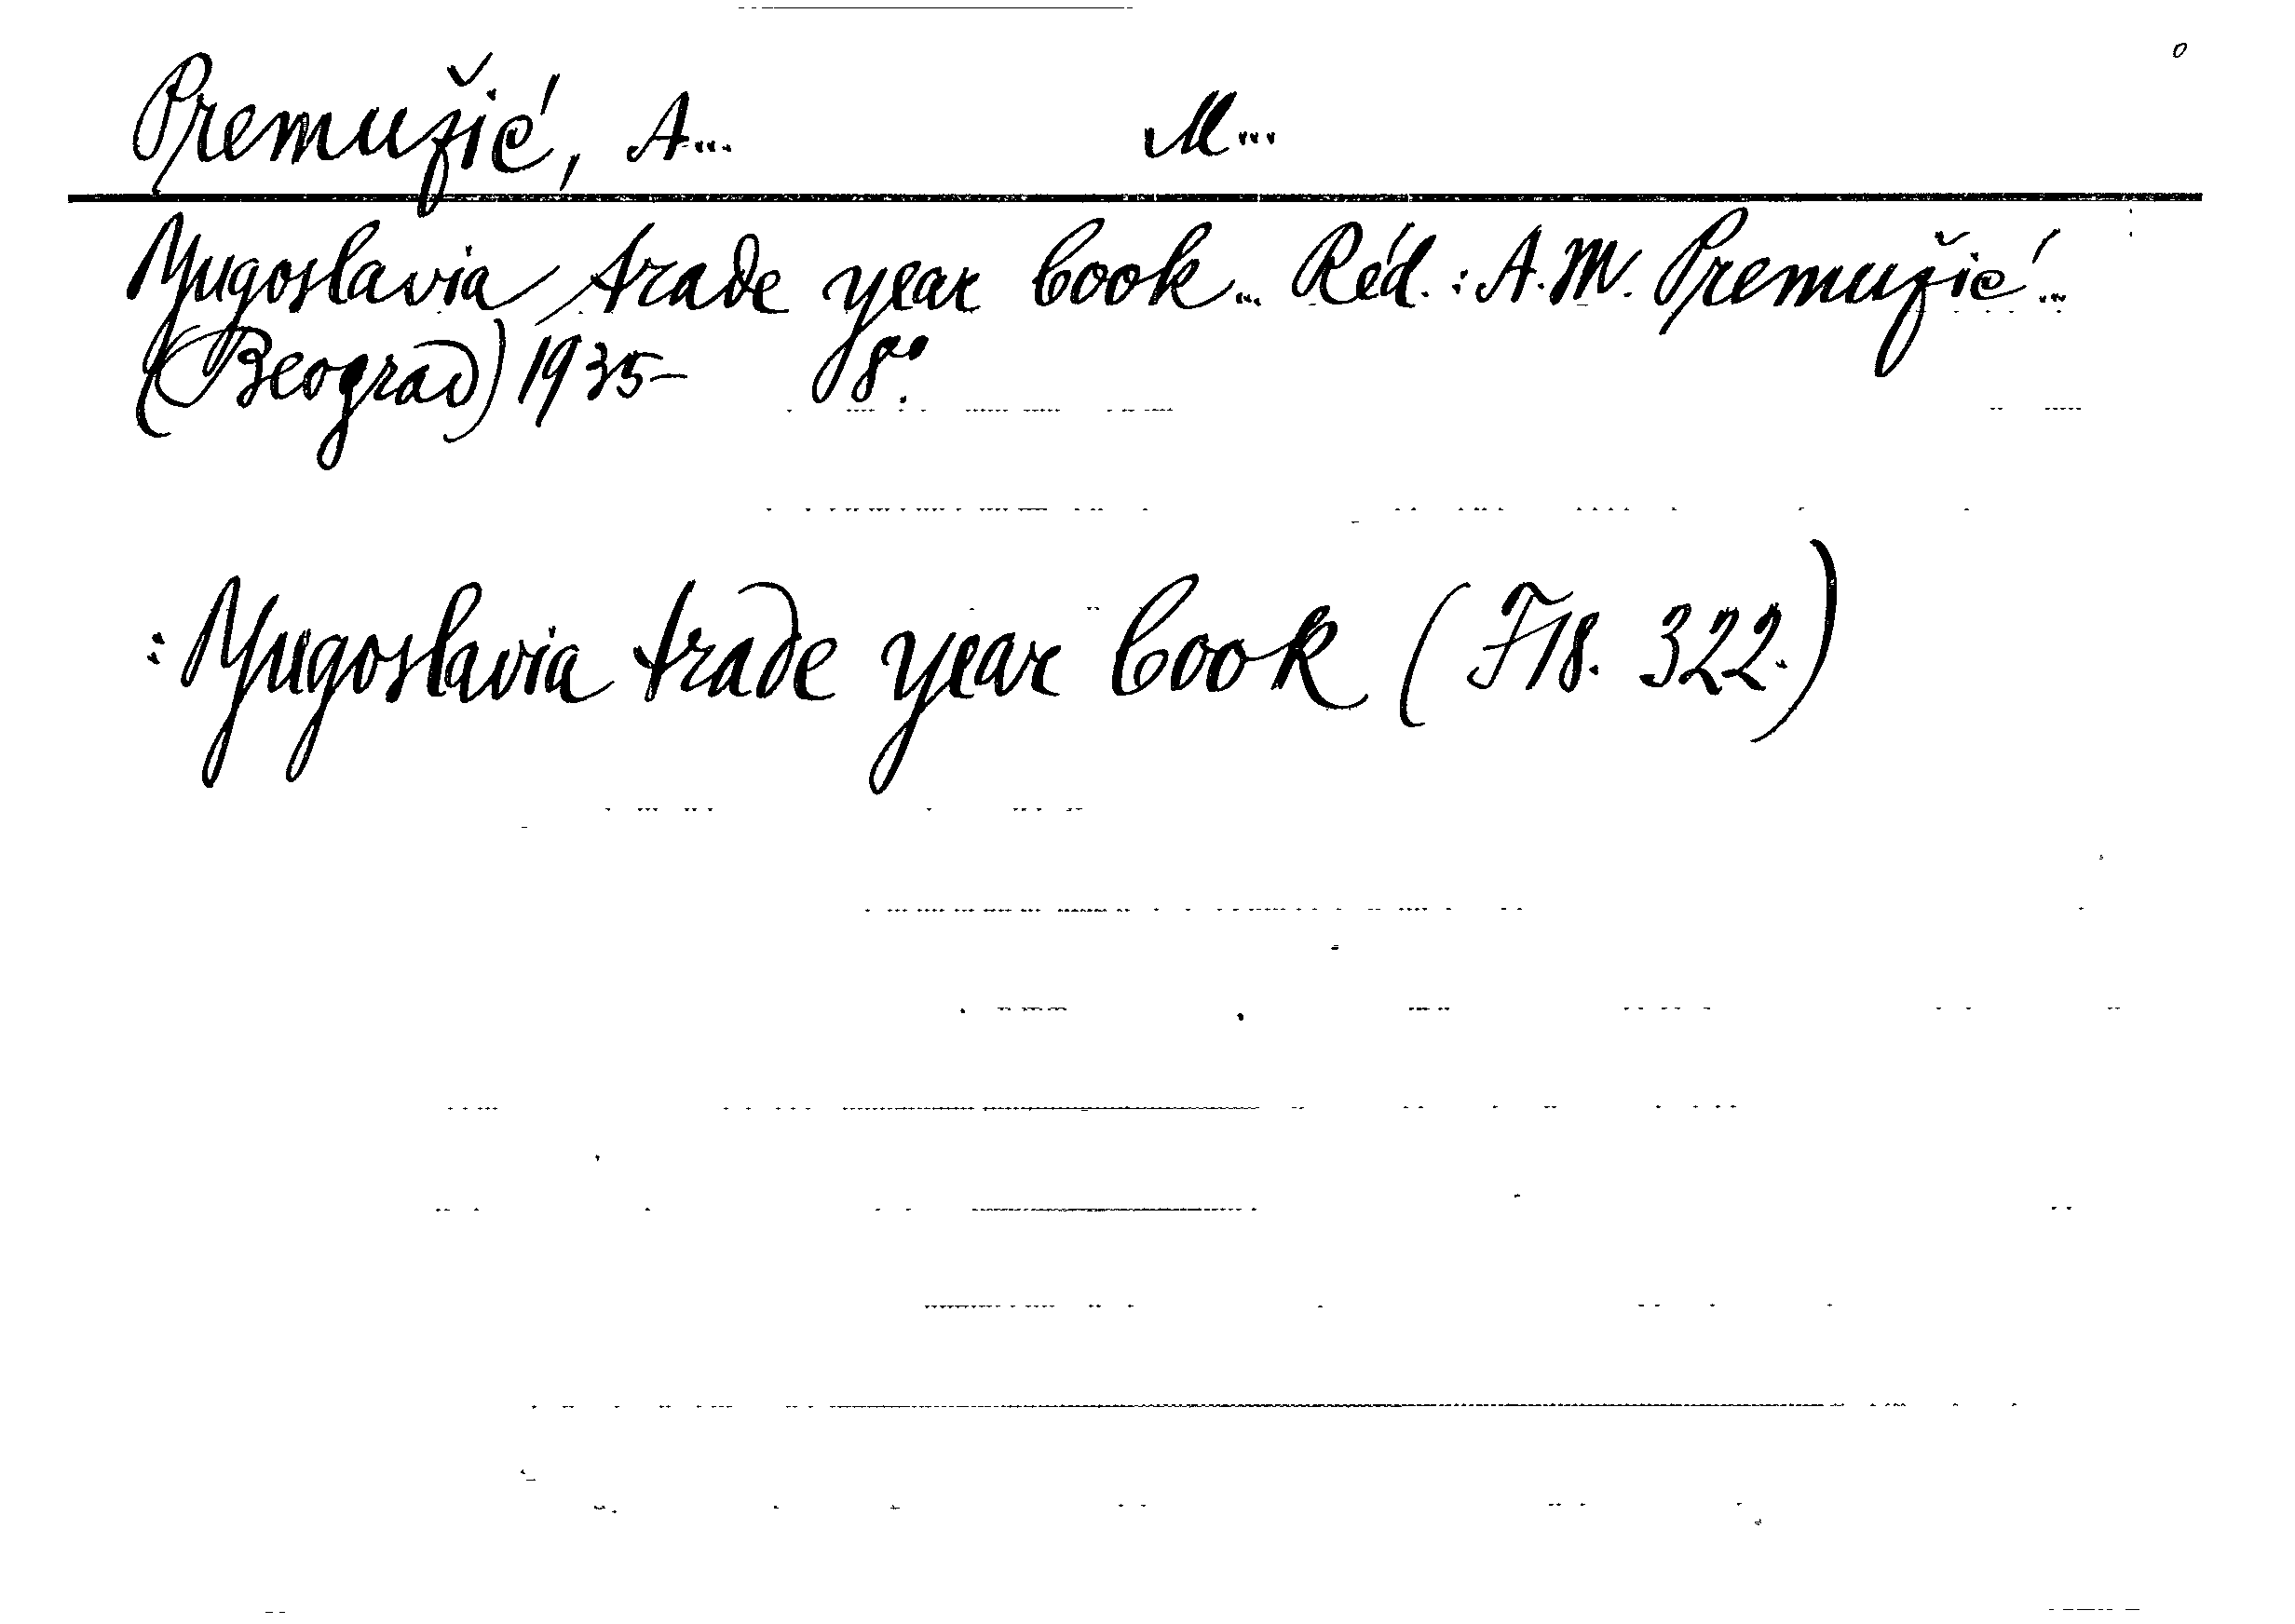 Premužić, A... M...
Yugoslavia trade year book... Réd.: A.M. Premužić...
(Beograd) 1935- 8°.
: Yugoslavia trade year book (F18. 322.)